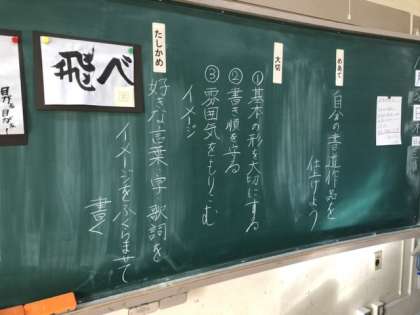 めあて
自分の書道作品を
仕上げよう
大切
①基本の形を大切にする
②書き順を守る
③雰囲気をもりこむ
イメージ
たしかめ
好きな言葉 字 歌詞を
イメージをふくらませて
書く
飛べ